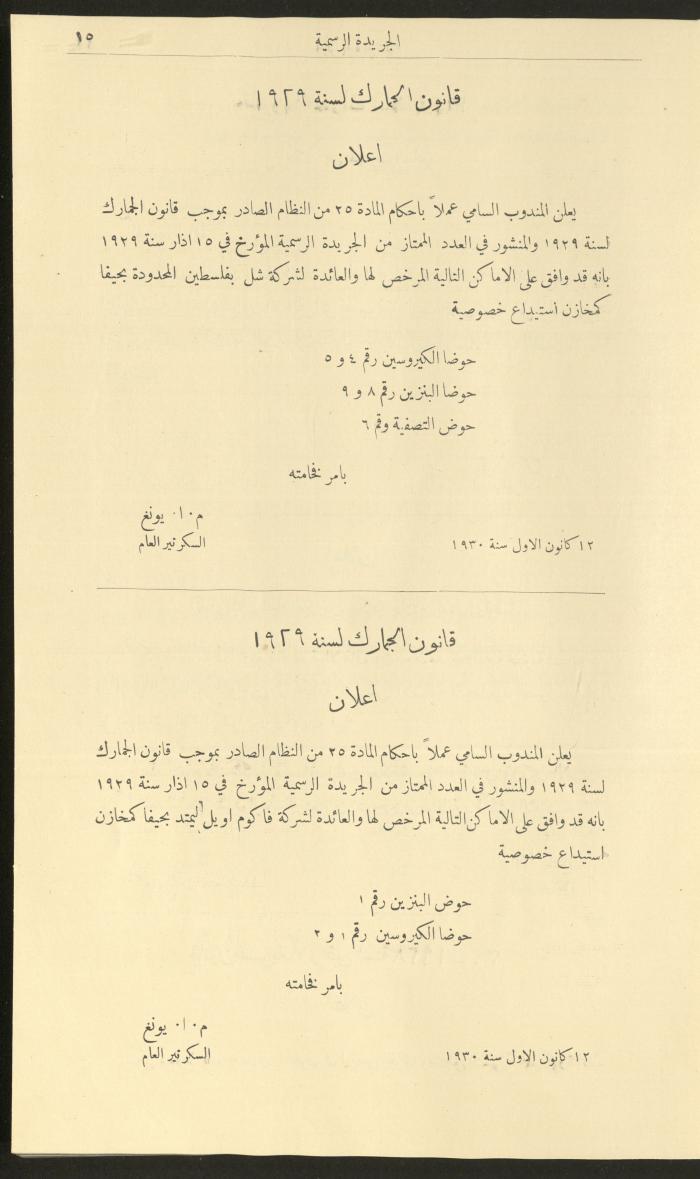 الجريدة الرسمية
١٥
قانون الجمارك لسنة ١٩٢٩
اعلان
يعلن المندوب السامي عملاً باحكام المادة ٢٥ من النظام الصادر بموجب قانون الجمارك
لسنة ١٩٢٩ والمنشور في العدد الممتاز من الجريدة الرسمية المؤرخ في ١٥ اذار سنة ١٩٢٩
بانه قد وافق على الاماكن التالية المرخص لها والعائدة لشركة شل بفلسطين المحدودة بحيفا
كمخازن أستيداع خصوصية
حوضا الكيروسين رقم ٤ و ٥
حوضا البنزين رقم ٨ و ٩
حوض التصفية وقم ٦
بامر فخامته
م ٠ ا ٠ يونغ
السكرتير العام
١٢ كانون الاول سنة ١٩٣٠
قانون الجمارك لسنة ١٩٢٩
اعلان
يعلن المندوب السامي عملاً باحكام المادة ٢٥ من النظام الصادر بموجب قانون الجمارك
لسنة ١٩٢٩ والمنشور في العدد الممتاز من الجريدة الرسمية المؤرخ في ١٥ اذار سنة ١٩٢٩
بانه قد وافق على الاماكن التالية المرخص لها والعائدة لشركة فاكوم اويل ليمتد بحيفا كمخازن
استيداع خصوصية
حوض البنزين رقم ١
حوضا الكيروسين رقم ١ و ٢
بامر فخامته
م ٠ ا ٠ يونغ
السكرتير العام
١٢ كانون الاول سنة ١٩٣٠